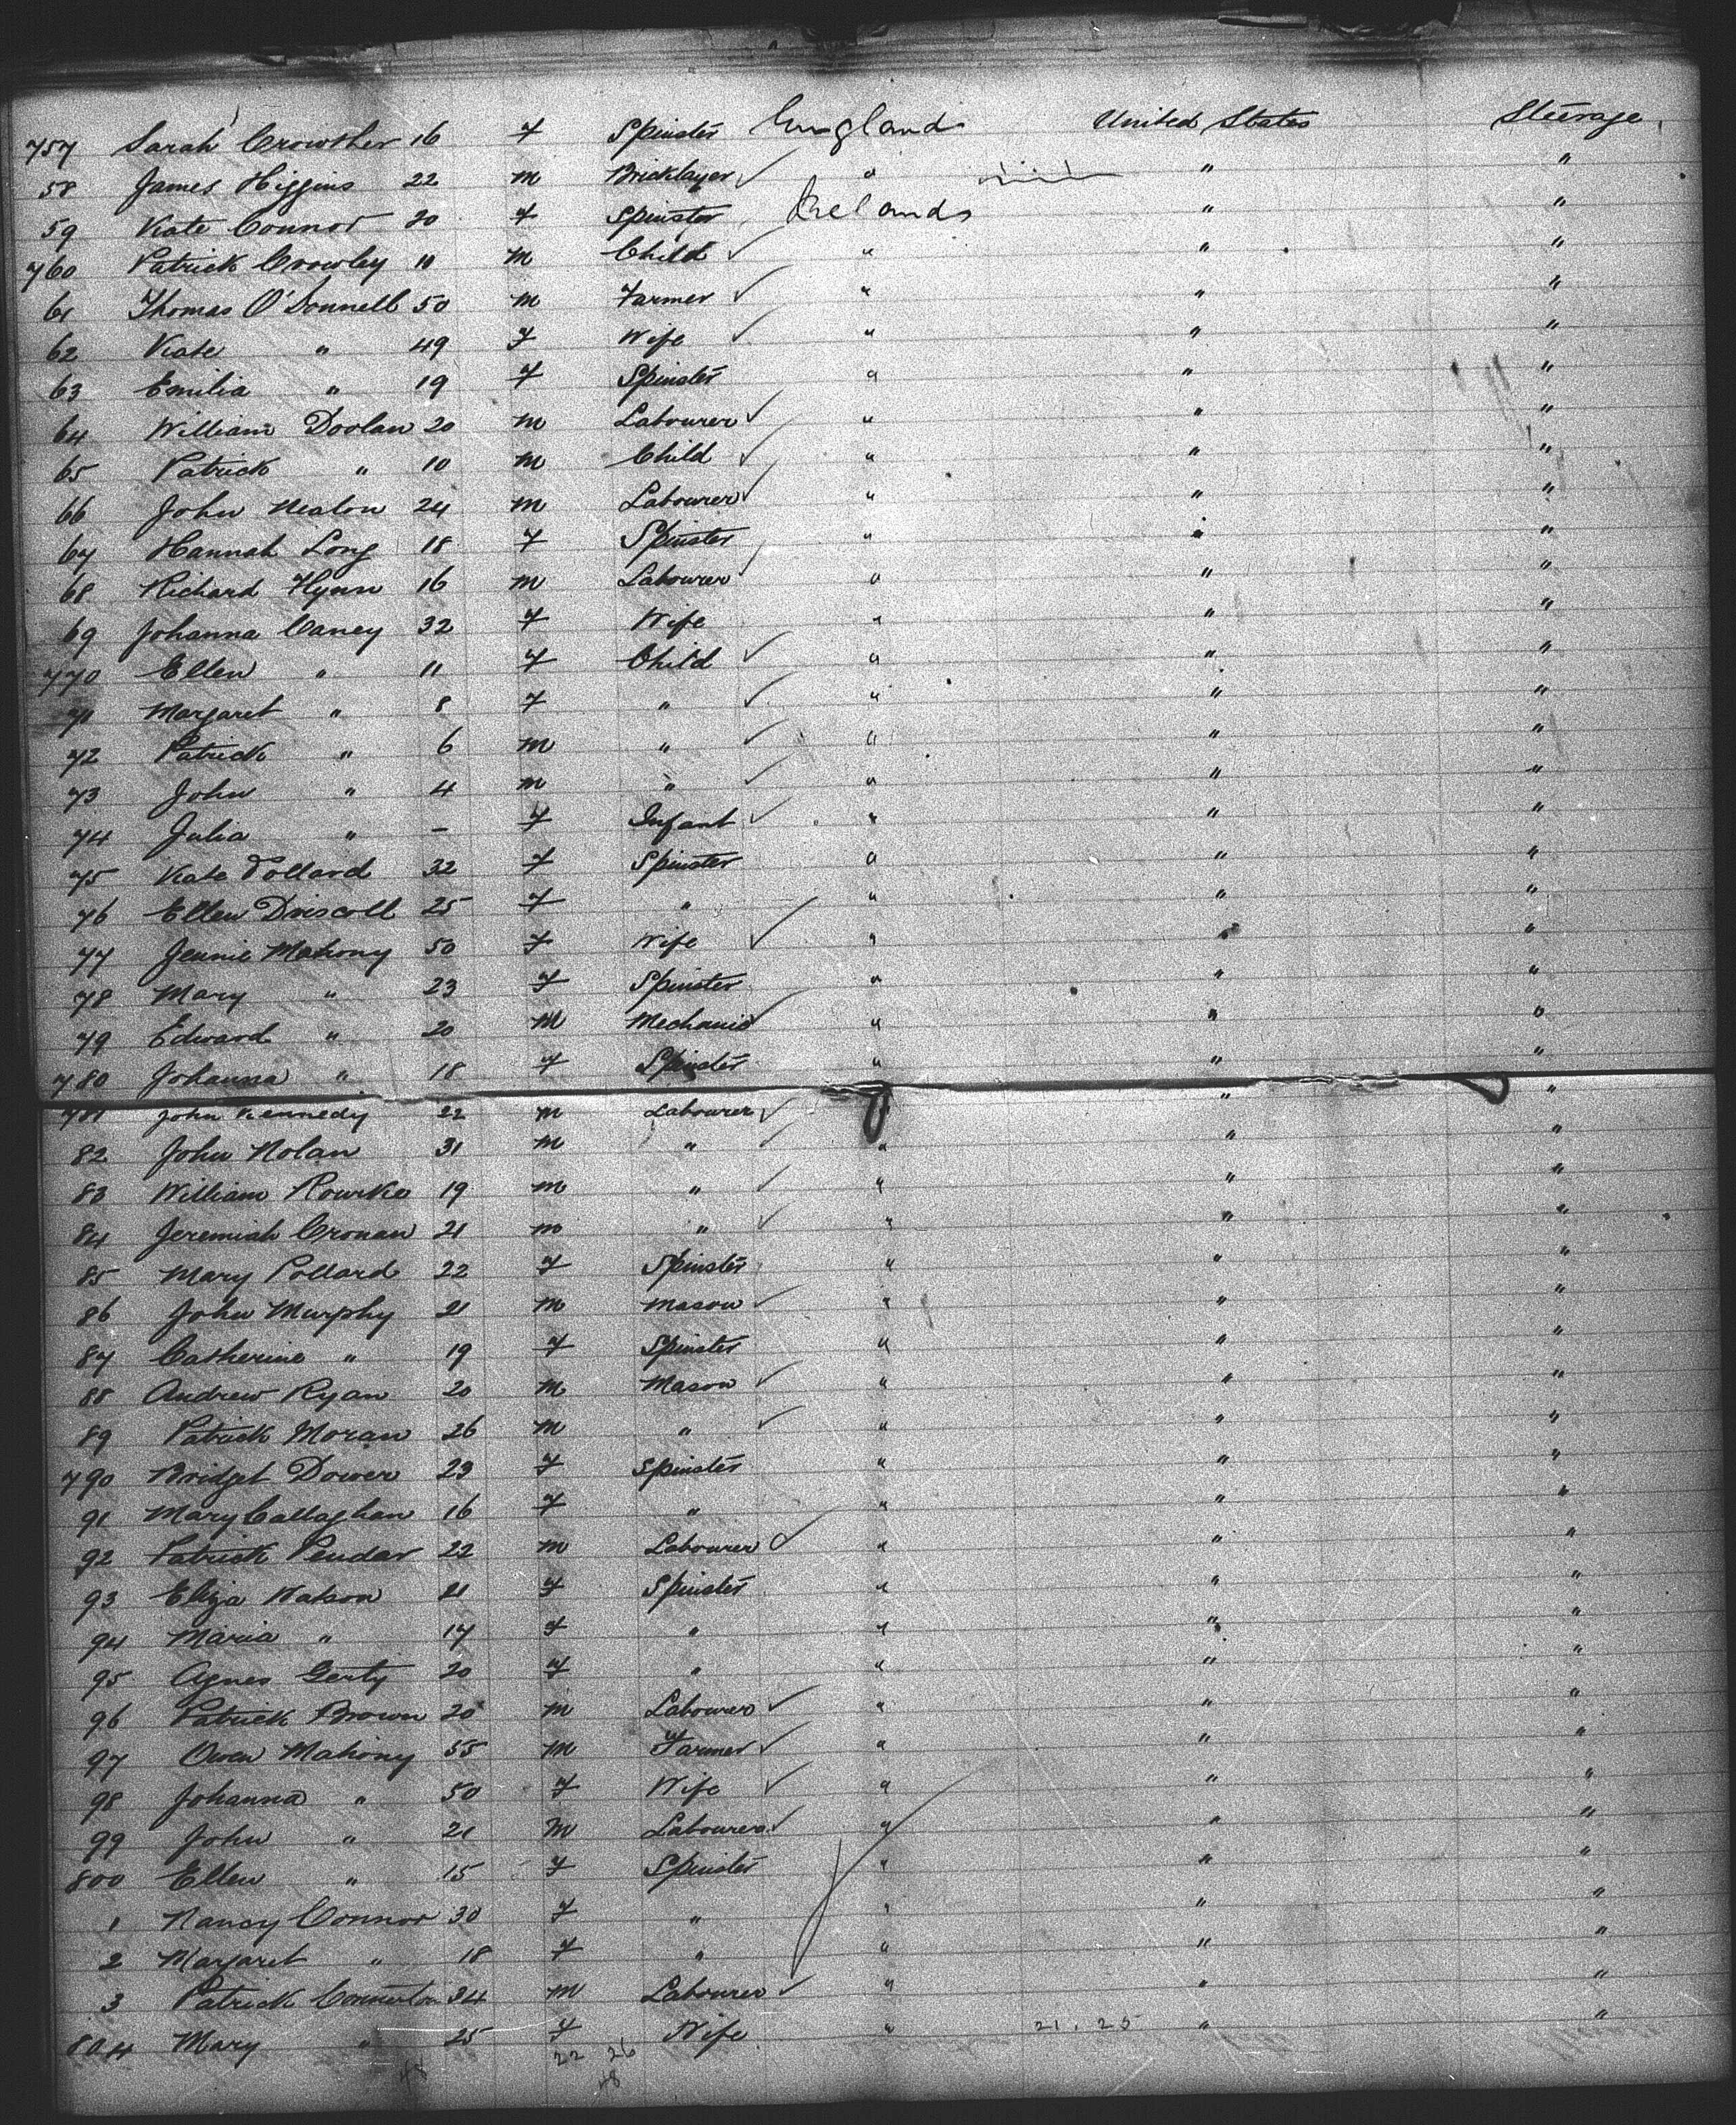 757 Sarah Crowther 16 F Spinster England United States Steerage
58 James Higgins 22 M Bricklayer " " "
59 Kate Connor 20 F Spinster Ireland " "
760 Patrick Crowley 10 M Child " " "
61 Thomas O'Donnell 50 M Farmer " " "
62 Kate " 49 F Wife " " "
63 Emilia " 19 F Spinster " " "
64 William Doolan 20 M Labourer " " "
65 Patrick " 10 M Child " " "
66 John Nealon 24 M Labourer " " "
67 Hannah Long 18 F Spinster " " "
68 Richard Flynn 16 M Labourer " " "
69 Johanna Caney 32 F Wife " " "
770 Ellen " 11 F Child " " "
71 Margaret " 8 F " " " "
72 Patrick " 6 M " " " "
73 John " 4 M " " " "
74 Julia " - F Infant " " "
75 Kate Pollard 32 F Spinster " " "
76 Ellen Driscoll 25 F " " " "
77 Jennie Mahony 50 F Wife " " "
78 Mary " 23 F Spinster " " "
79 Edward " 20 M Mechanic " " "
780 Johanna " 18 F Spinster " " "
781 John Kennedy 22 M Labourer " "
82 John Nolan 31 M " " " "
83 William Rourke 19 M " " " "
84 Jeremiah Cronan 21 M " " " "
85 Mary Pollard 22 F Spinster " " "
86 John Murphy 21 M Mason " " "
87 Catherine " 19 F Spinster " " "
88 Andrew Ryan 20 M Mason " " "
89 Patrick Moran 26 M " " " "
790 Bridget Dower 23 F Spinster " " "
91 Mary Callaghan 16 F " " " "
92 Patrick Pendar 22 M Labourer " " "
93 Eliza Watson 21 F Spinster " " "
94 Maria " 17 F " " " "
95 Agnes Gerty 20 F " " " "
96 Patrick Brown 20 M Labourer " " "
97 Owen Mahony 55 M Farmer " " "
98 Johanna " 50 F Wife " " "
99 John " 21 M Labourer " " "
800 Ellen " 15 F Spinster " " "
1 Nancy Connor 30 F " " " "
2 Margaret " 18 F " " " "
3 Patrick Connerton 24 M Labourer " " "
804 Mary " 25 F Wife " 21. 25 " "
22 26
48 48